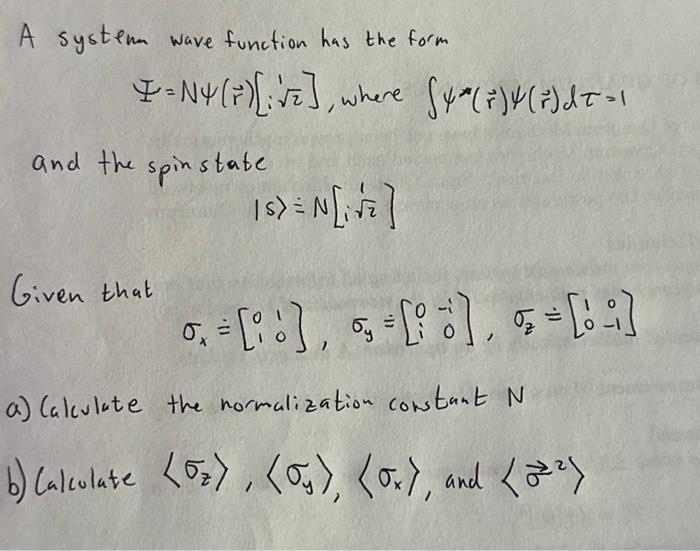 A system wave function has the form
Ψ = Nψ(r⃗)[1 i√2], where ∫ψ*(r⃗)ψ(r⃗)dτ=1
and the spin state
|s⟩ ≐ N[1 i√2]
Given that
σx ≐ [0 1 1 0], σy ≐ [0 -i i 0], σz ≐ [1 0 0 -1]
a) Calculate the normalization constant N
b) Calculate ⟨σz⟩, ⟨σy⟩, ⟨σx⟩, and ⟨σ⃗²⟩